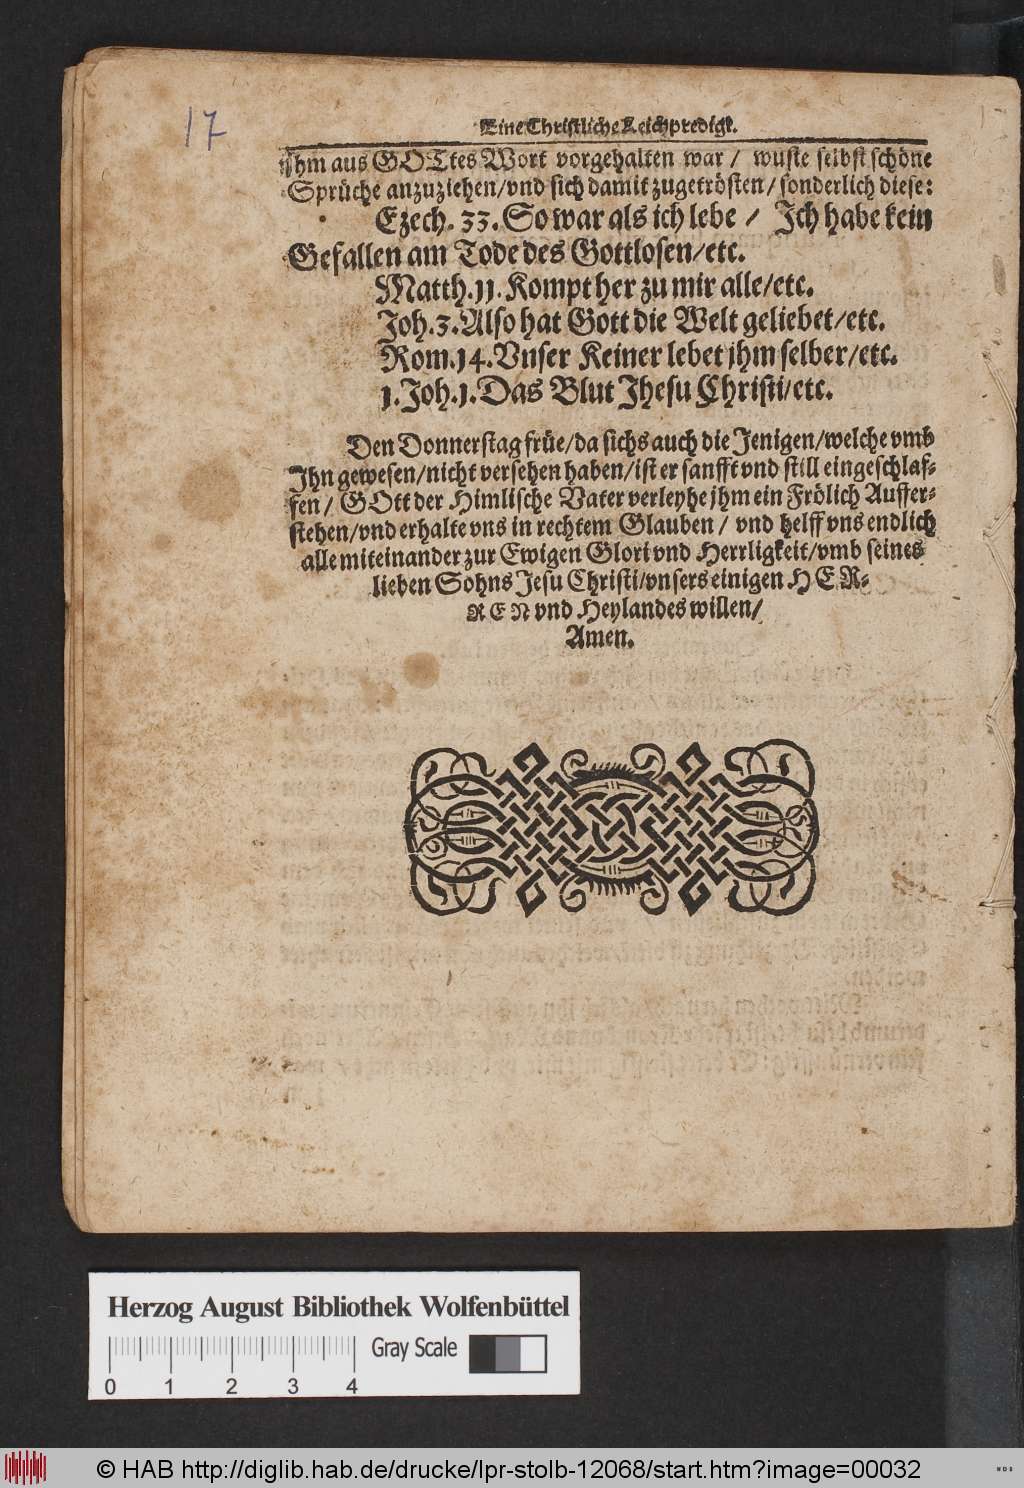 17
Eine Christliche Leichpredigt.
jhm aus GOTtes Wort vorgehalten war / wuste selbst schöne
Sprüche anzuziehen/vnd sich damit zugetrösten/ sonderlich diese:
Ezech. 33. So war als ich lebe / Ich habe kein
Gefallen am Tode des Gottlosen/etc.
Matth. 11. Kompt her zu mir alle/etc.
Joh. 3. Also hat Gott die Welt geliebet/etc.
Rom. 14. Vnser Keiner lebet jhm selber/etc.
1. Joh. 1. Das Blut Jhesu Christi/etc.
Den Donnerstag früe/da sichs auch die Jenigen/welche vmb
Ihn gewesen/nicht versehen haben/ist er sanfft vnd still eingeschlaf-
fen/ GOtt der Himlische Vater verleyhe jhm ein Frölich Auffer-
stehen/vnd erhalte vns in rechtem Glauben / vnd helff vns endlich
alle miteinander zur Ewigen Glori vnd Herrligkeit/vmb seines
lieben Sohns Jesu Christi/vnsers einigen HER-
REN vnd Heylandes willen/
Amen.
Herzog August Bibliothek Wolfenbüttel
Gray Scale
0 1 2 3 4
© HAB http://diglib.hab.de/drucke/lpr-stolb-12068/start.htm?image=00032